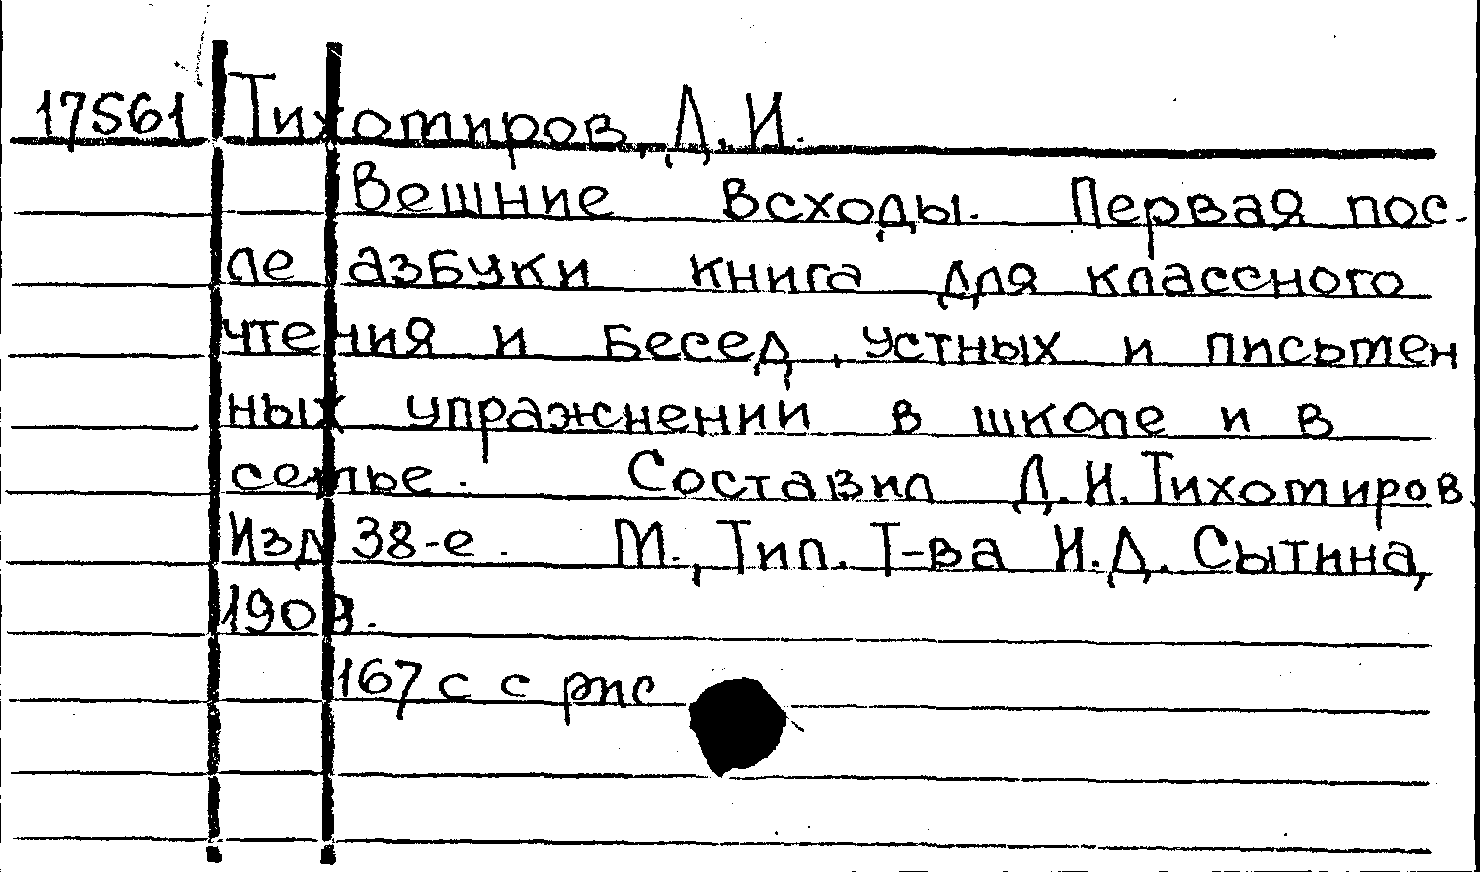 17561 Тихомиров, Д.И.
Вешние всходы. Первая пос-
ле азбуки книга для классного
чтения и бесед, устных и письмен
ных упражнений в школе и в
семье. Составил Д.И.Тихомиров.
Изд 38-е. М., Тип. Т-ва И.Д. Сытина,
1908.
167 с с рис